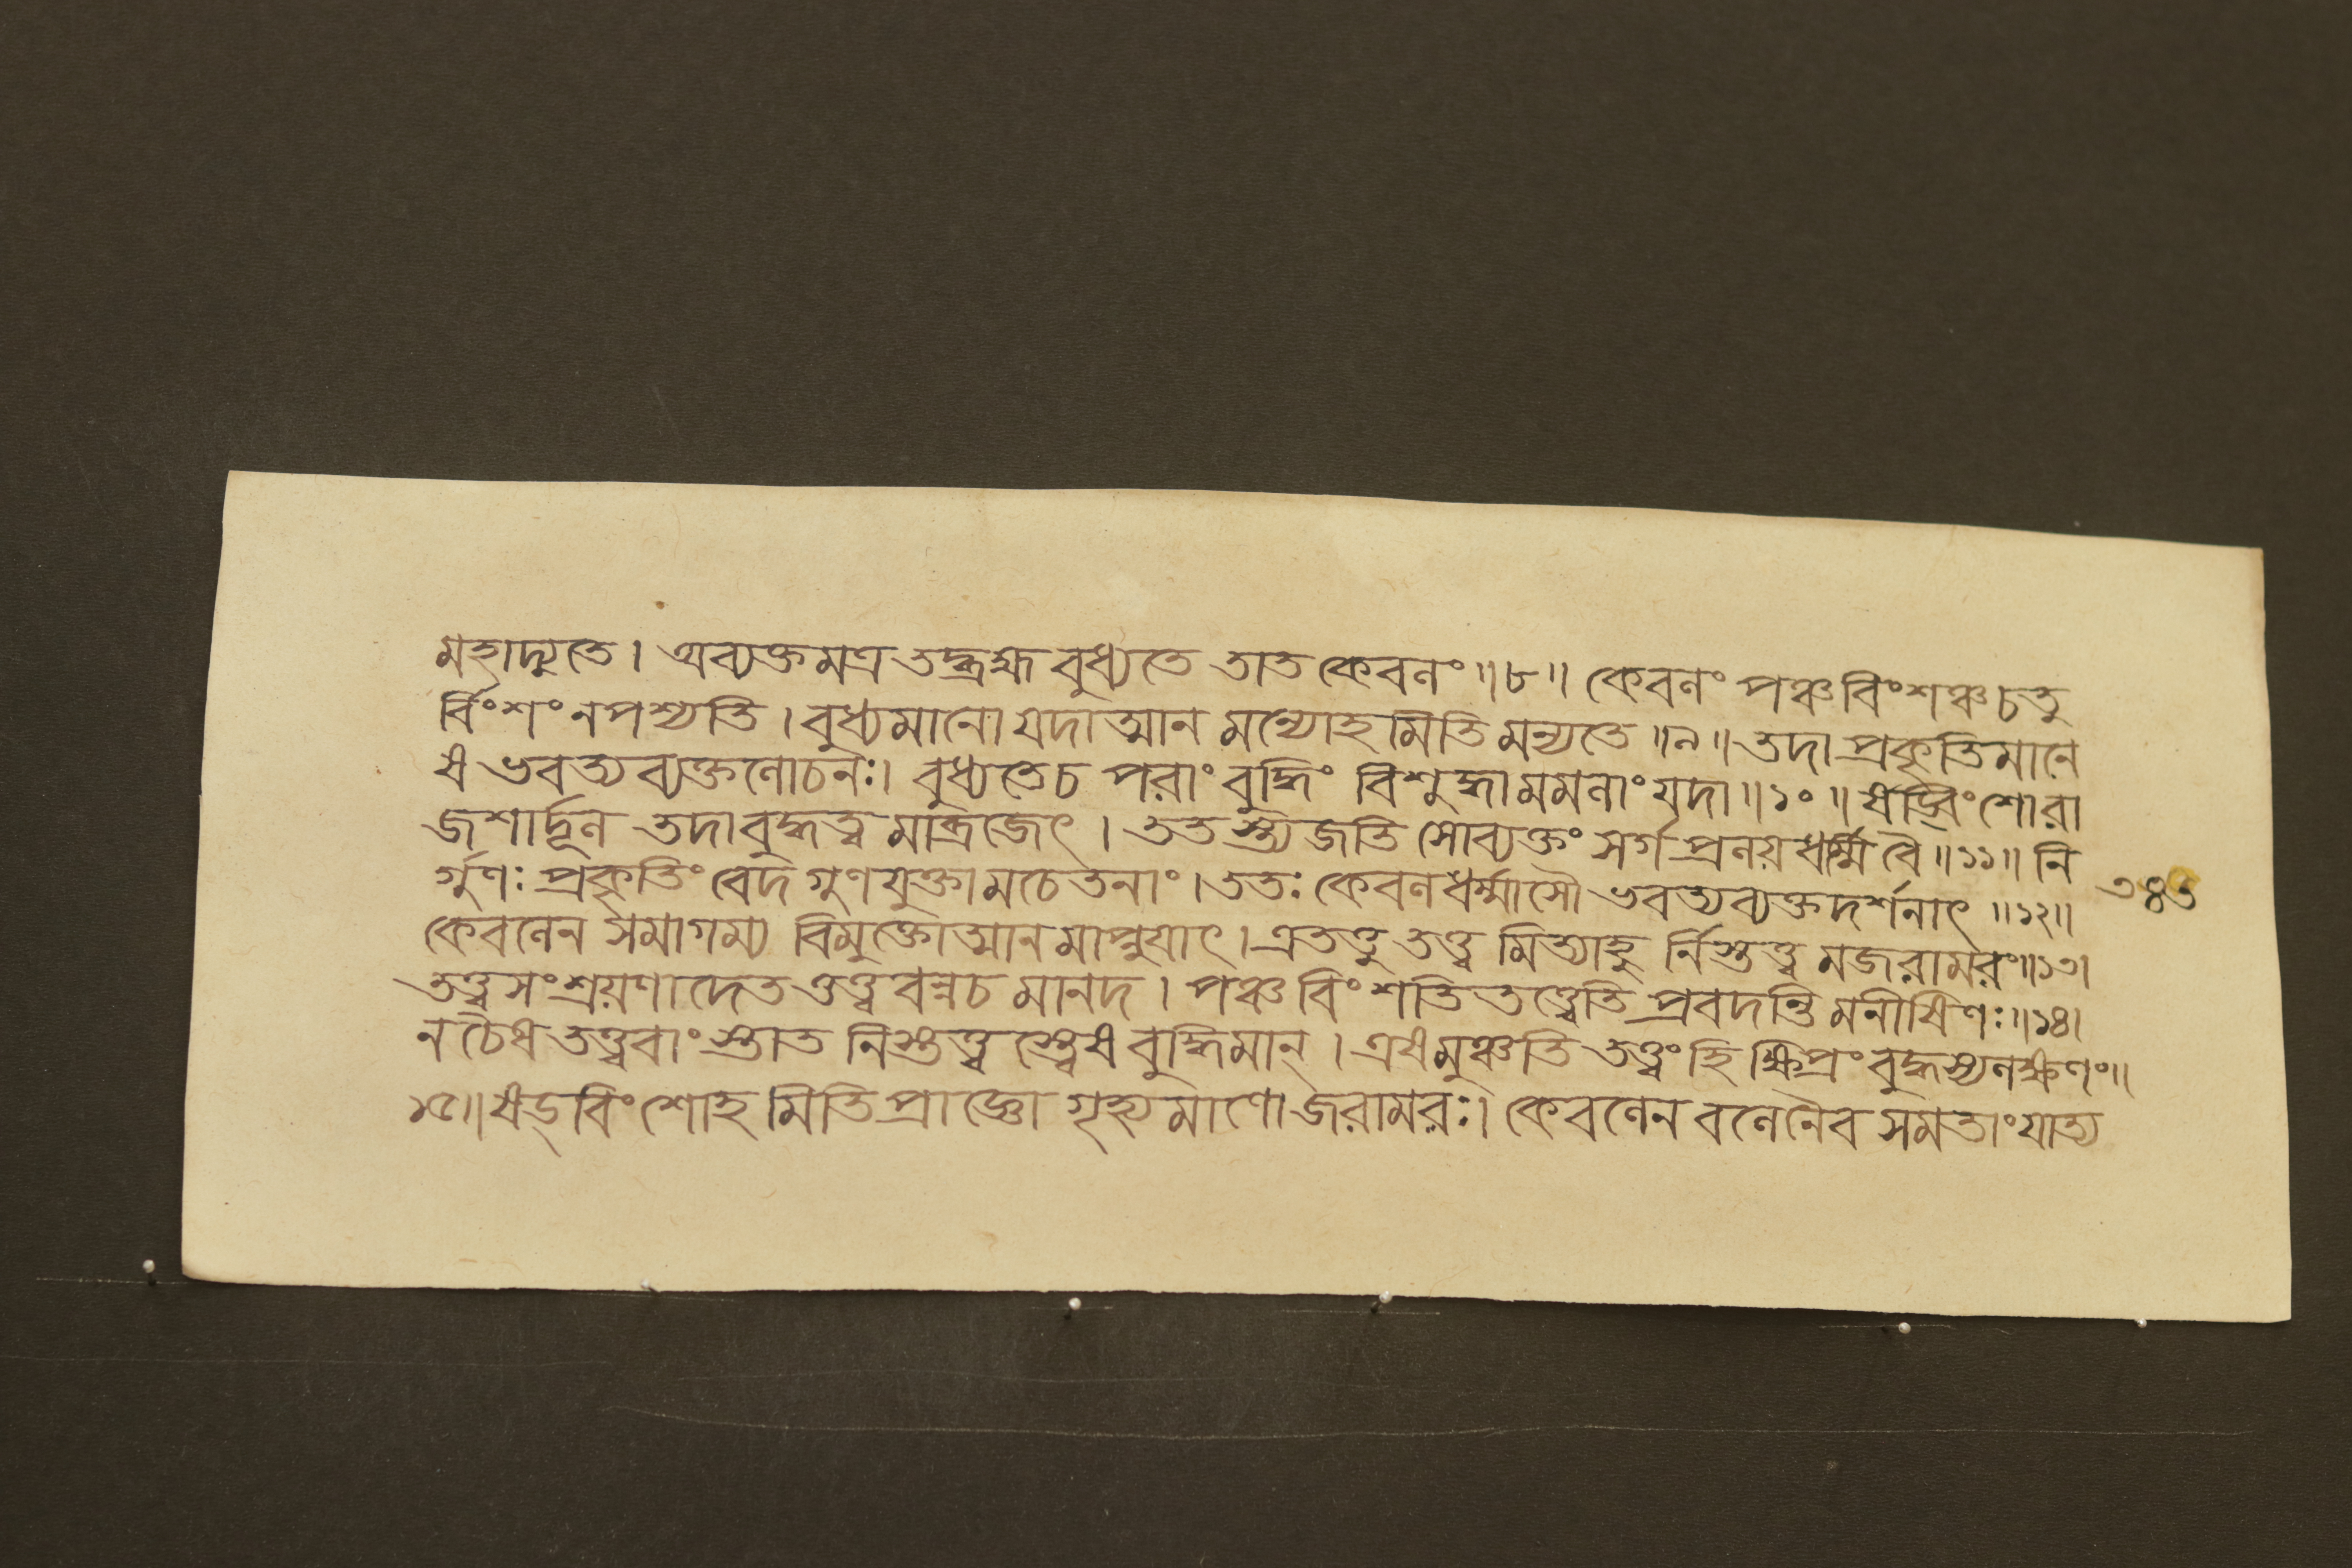 মহাদ্যুতে। অব্যক্তমত্র তদ্ব্রহ্ম বুধ্যতে তাত কেবলং॥৮॥ কেবলং পঞ্চবিংশঞ্চ চতু
র্বিংশং নপশ্যতি। বুধ্যমানো যদাত্মান মন্যোহমিতি মন্যতে॥৯॥ তদা প্রকৃতিমানে
ষ ভবত্যব্যক্তলোচনঃ। বুধ্যতেচ পরাং বুদ্ধিং বিশুদ্ধামমলাং যদা॥১০॥ ষড্বিংশোরা
জশার্দ্দূল তদাবুদ্ধত্ব মাব্রজেৎ। ততস্ত্যজতি সোব্যক্তং সর্গপ্রলয়ধর্ম্মি বৈ॥১১॥ নি
র্গুণঃ প্রকৃতিং বেদ গুণযুক্তামচেতনাং। ততঃ কেবলধর্ম্মাসৌ ভবত্যব্যক্তদর্শনাৎ॥১২॥
কেবলেন সমাগম্য বিমুক্তোত্মানমাপ্নুয়াৎ। এতত্তু তত্ত্ব মিত্যাহু র্নিস্তত্ত্ব মজরামরং॥১৩।
তত্ত্বসংশ্রয়ণাদেতত্তত্ত্ববন্নচ মানদ। পঞ্চবিংশতি তত্ত্বেতি প্রবদন্তি মনীষিণঃ॥১৪।
নচৈষ তত্ত্ববাংস্তাত নিস্তত্ত্বস্ত্বেষ বুদ্ধিমান্। এষমুঞ্চতি তত্ত্বং হি ক্ষিপ্রং বুদ্ধস্যলক্ষণং॥
১৫॥ ষড্‌বিংশোহমিতি প্রাজ্ঞো গৃহ্যমাণোজরামরঃ। কেবলেন বলেনৈব সমতাং যাত্য
৩৪৩